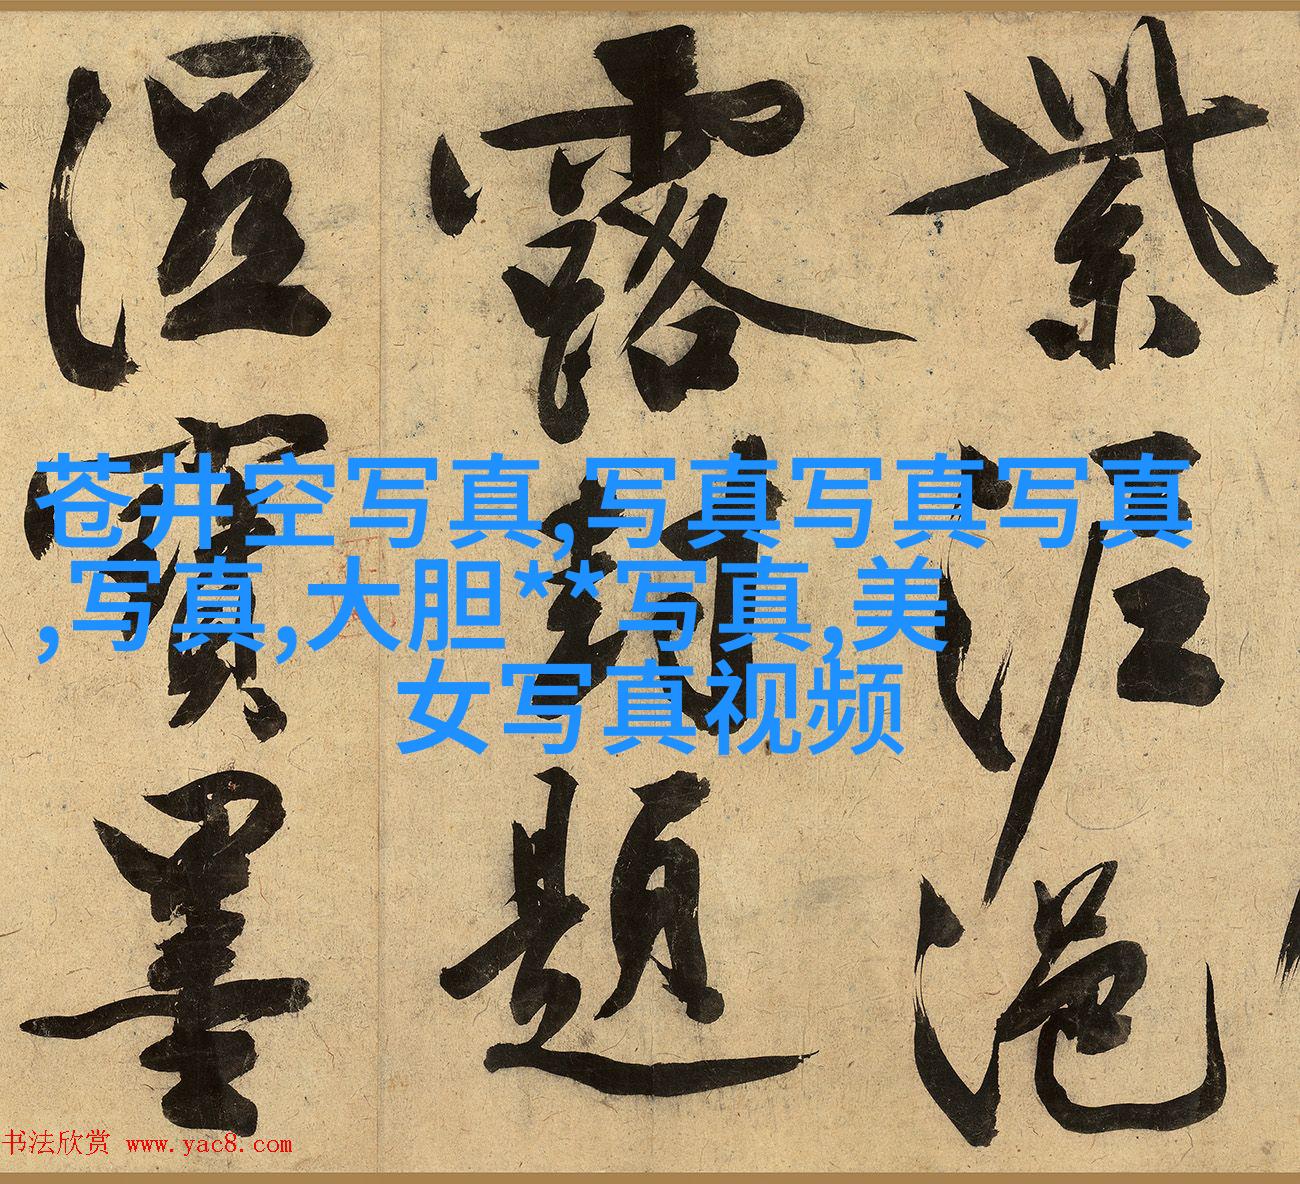 紫泥浥
露封題
溼寶墨
苍井空写真,写真写真写真
,写真,大胆**写真,美
女写真视频
书法欣赏 www.yac8.com